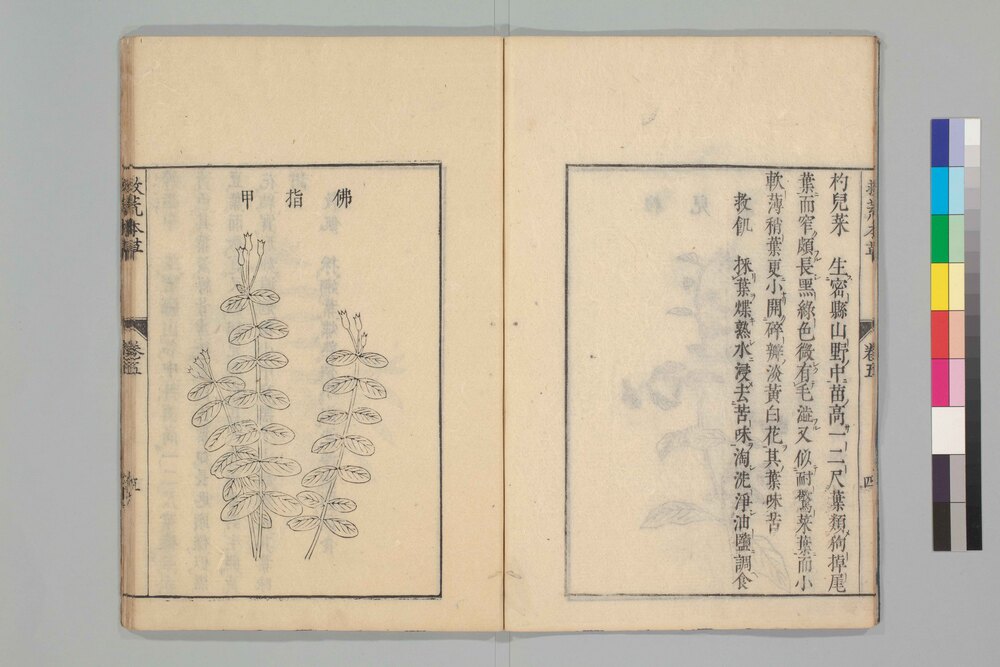 救荒本草 卷五 四
杓兒菜 生密縣山野中苗高一二尺葉類狗掉尾
葉而窄頗長黑綠色微有毛澁又似耐驚菜葉而小
軟薄稍葉更小開碎瓣淡黃白花其葉味苦
救飢 採葉煠熟水浸去苦味淘洗淨油鹽調食
佛指甲
救荒本草 卷五